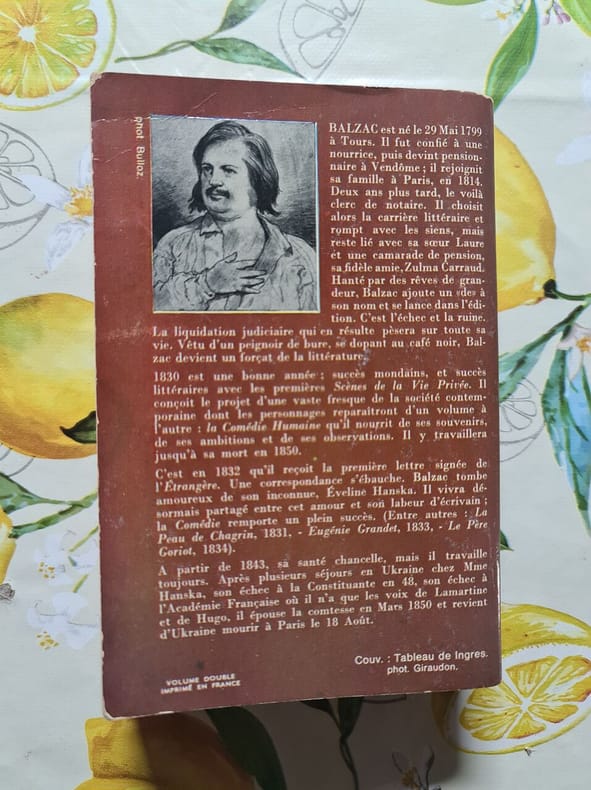 phot. Bulloz.
BALZAC est né le 29 Mai 1799
à Tours. Il fut confié à une
nourrice, puis devint pension-
naire à Vendôme ; il rejoignit
sa famille à Paris, en 1814.
Deux ans plus tard, le voilà
clerc de notaire. Il choisit
alors la carrière littéraire et
rompt avec les siens, mais
reste lié avec sa sœur Laure
et une camarade de pension,
sa fidèle amie, Zulma Carraud.
Hanté par des rêves de gran-
deur, Balzac ajoute un «de» à
son nom et se lance dans l'édi-
tion. C'est l'échec et la ruine.
La liquidation judiciaire qui en résulte pèsera sur toute sa
vie. Vêtu d'un peignoir de bure, se dopant au café noir, Bal-
zac devient un forçat de la littérature.
1830 est une bonne année : succès mondains, et succès
littéraires avec les premières Scènes de la Vie Privée. Il
conçoit le projet d'une vaste fresque de la société contem-
poraine dont les personnages reparaîtront d'un volume à
l'autre : la Comédie Humaine qu'il nourrit de ses souvenirs,
de ses ambitions et de ses observations. Il y travaillera
jusqu'à sa mort en 1850.
C'est en 1832 qu'il reçoit la première lettre signée de
l'Étrangère. Une correspondance s'ébauche. Balzac tombe
amoureux de son inconnue, Éveline Hanska. Il vivra dé-
sormais partagé entre cet amour et son labeur d'écrivain ;
la Comédie remporte un plein succès. (Entre autres : La
Peau de Chagrin, 1831, - Eugénie Grandet, 1833, - Le Père
Goriot, 1834).
A partir de 1843, sa santé chancelle, mais il travaille
toujours. Après plusieurs séjours en Ukraine chez Mme
Hanska, son échec à la Constituante en 48, son échec à
l'Académie Française où il n'a que les voix de Lamartine
et de Hugo, il épouse la comtesse en Mars 1850 et revient
d'Ukraine mourir à Paris le 18 Août.
Couv. : Tableau de Ingres.
phot. Giraudon.
VOLUME DOUBLE
IMPRIMÉ EN FRANCE